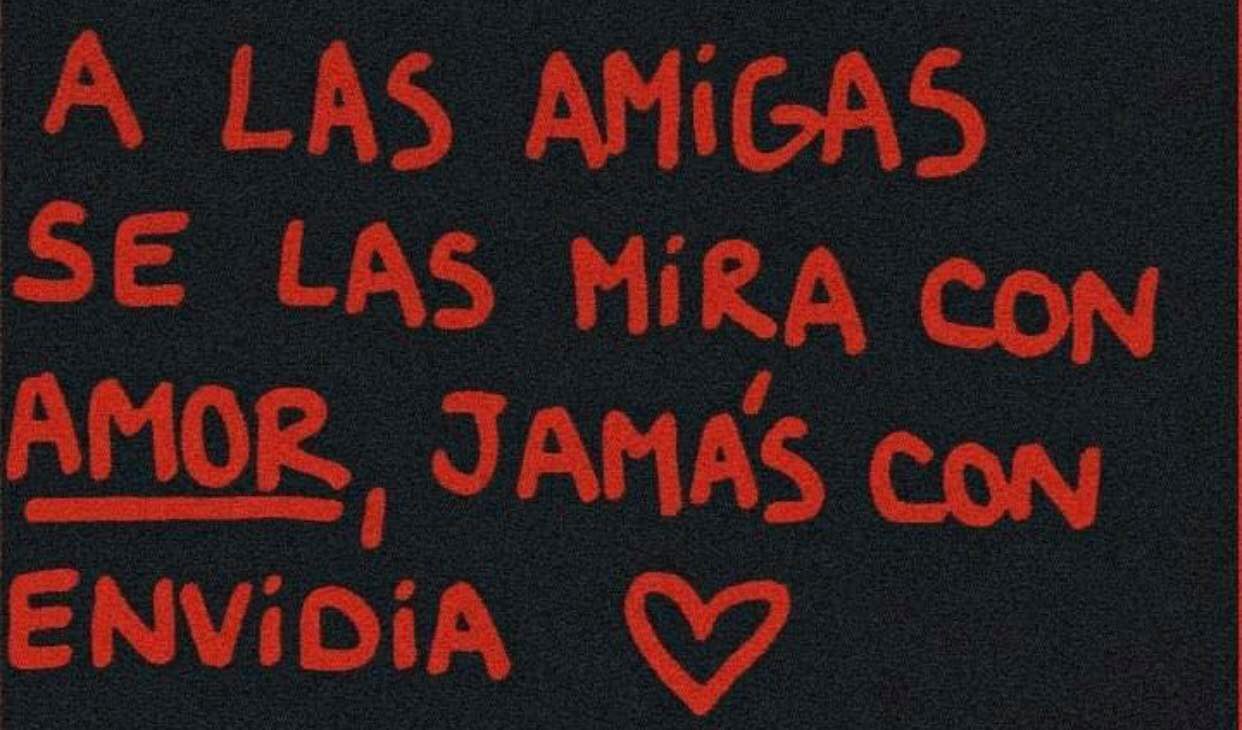 A LAS AMiGAS
SE LAS MiRA CON
AMOR, JAMÁS CON
ENViDiA ♡